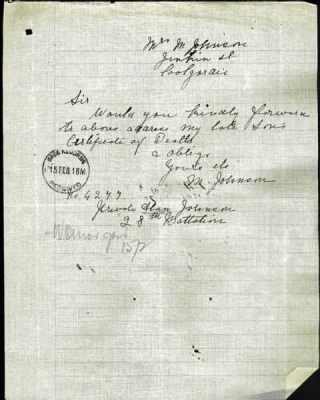 Mrs M Johnson
Jenkin st
Coolgardie
Sir
Would you kindly forward
to above adress my late Sons
Certificate of Death
& Oblige
Yours etc
M Johnson
No. 4277
Private Johnson
28th Battalion
BASE RECORDS
15 FEB 18
RECEIVED
15/2